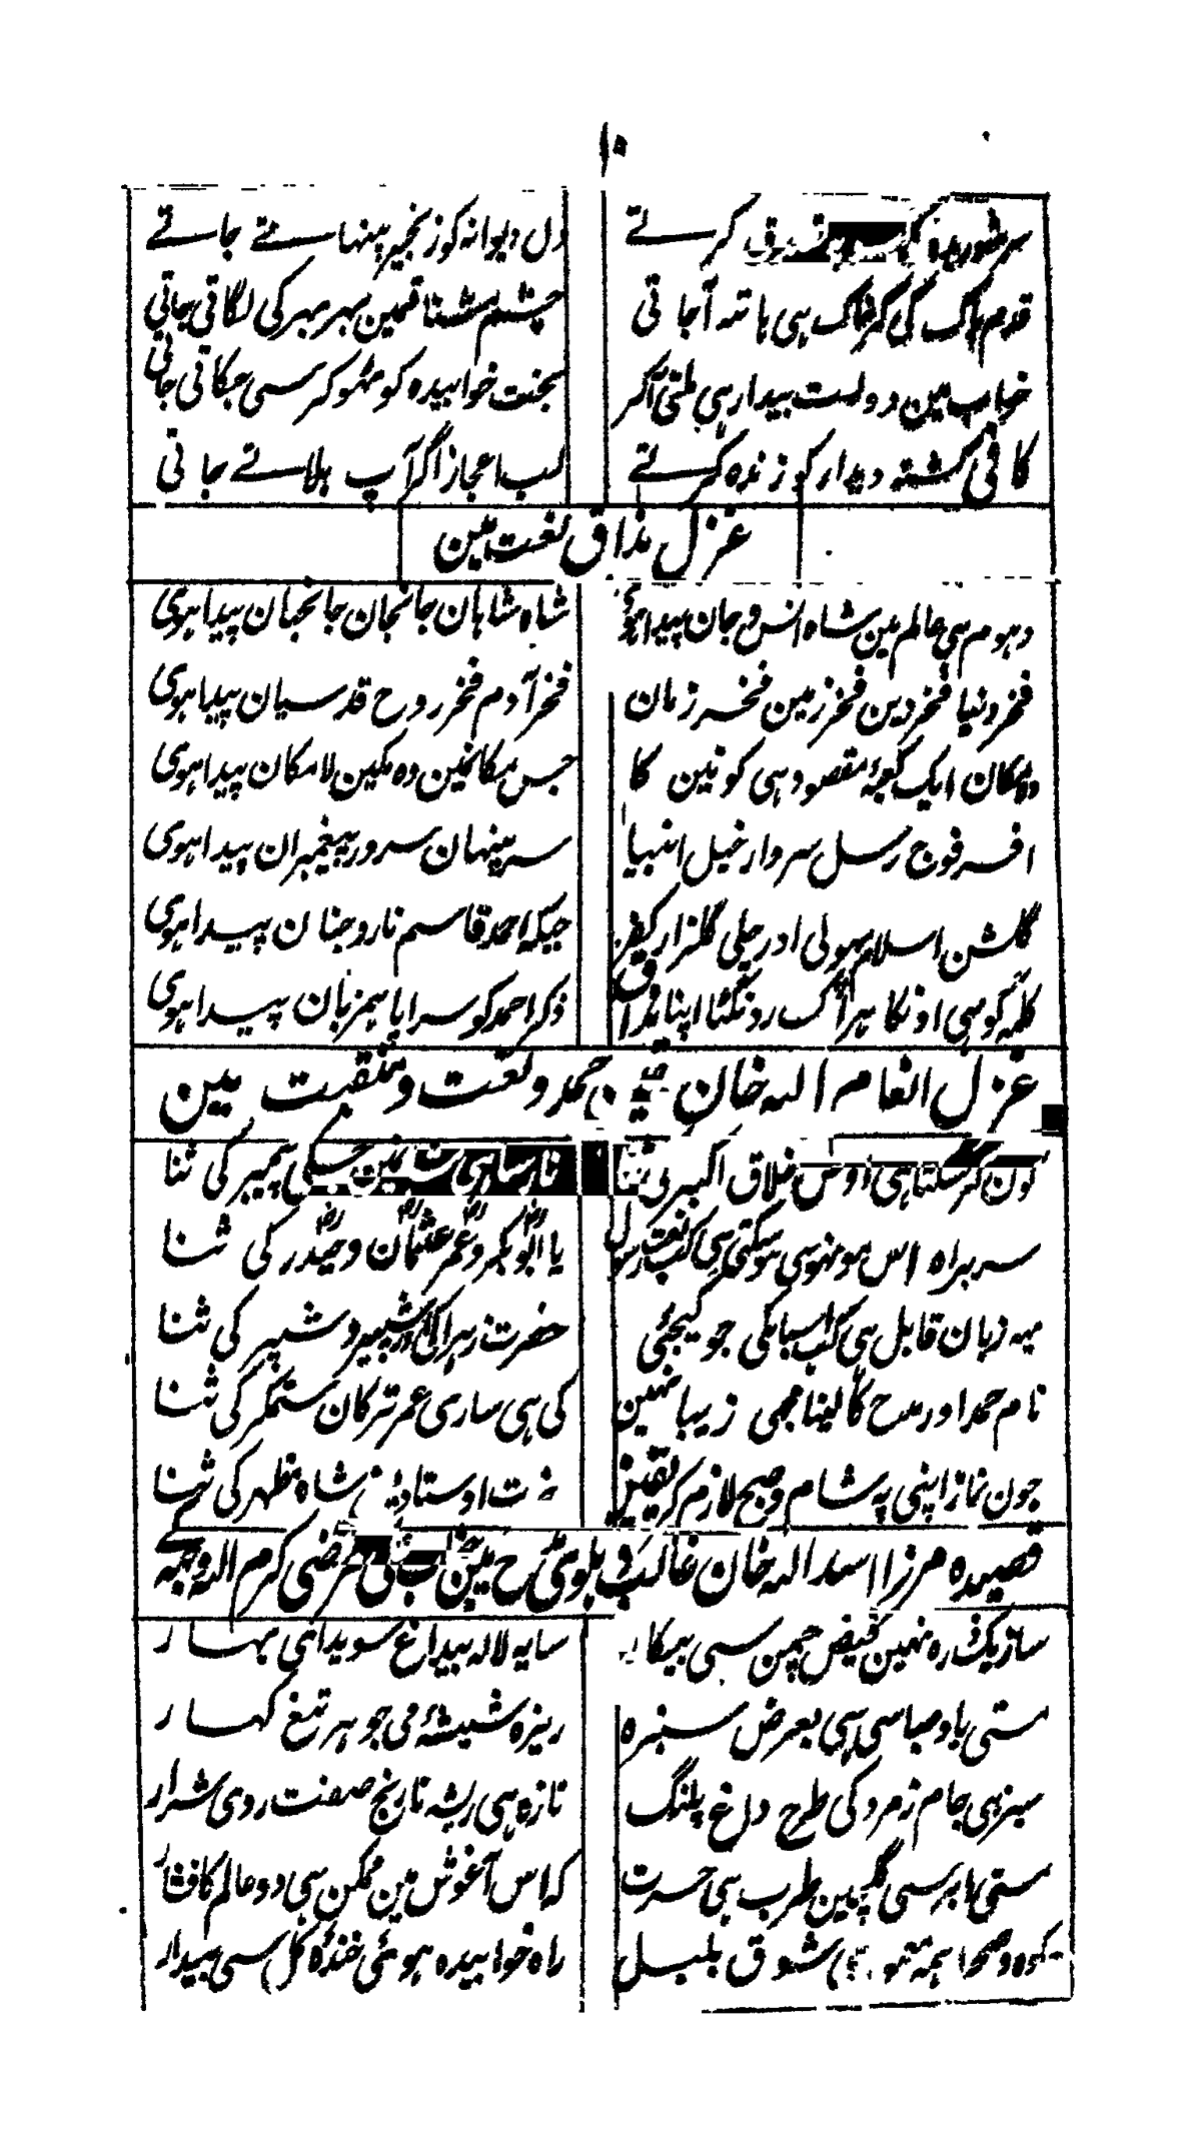 ۱۰
سر شوریدہ کو تصدق کرتے دل دیوانہ کو زنجیر پنہاتے جاتے
قدم پاک کی گر خاک ہی ہاتہ آجاتی چشم مشتاقمین بہر بہر کی لگاتی جاتی
خواب مین دولت بیدار ہی ملتی آکر بخت خوابیدہ کو ٹھوکر سی جگاتی جاتی
کافی کشتہ دیدار کو زندہ کرتے لب اعجاز اگر آپ ہلاتے جاتی
غزل مذاق نعت مین
دہوم ہی عالم مین شاہ انس و جان پیدا ہوئی شاہ شاہان جانجان جانجہان پیدا ہوی
فخر دنیا فخر دین فخر زمین فخر زمان فخر آدم فخر روح قدسیان پیدا ہوی
ایک کعبۂ مقصود ہی کونین کا جس مکانمین وہ مکین لامکان پیدا ہوی
افسر فوج رسل سردار خیل انبیا سر پنہان سرور پیغمبران پیدا ہوی
گلشن اسلام پہولی اور جلی گلزار کفر جبکہ احمد قاسم نار و جنان پیدا ہوی
کلمہ گو ہی اونکا ہر اک رونگٹا اپنا مذاق ذکر احمد کو سراپا ہمزبان پیدا ہوی
غزل انعام اللہ خان حمد و نعت و منقبت مین
کون کر سکتا ہی اوس خلاق اکبر کی ثنا نارسا ہی شان مین جسکی پیمبر کی ثنا
سربراہ اس مونہوسی ہوسکتی ہی کب نعت رسول یا ابوبکر و عمر عثمان و حیدر کی ثنا
یہہ زبان قابل ہی کب اسباتکی جو کیجئی حضرت زہرا کی اور شبیر و شبر کی ثنا
نام حمد اور مدح کا لینا مجھی زیبا نہین کی ہی ساری عمر ترکان ستمگر کی ثنا
جون نماز اپنی پہ شام و صبح لازم کر یقین اوستاد شاہ مظہر کی ثنا
قصیدہ مرزا اسد اللہ خان غالب دہلوی مدح مین جناب علی مرتضی کرم اللہ وجہہ کے
ساز یک ذرہ نہین فیض چمن سی بیکار سایہ لالہ بیداغ سویدای بہار
مستی باد صبا سی ہی بعرض سبزہ ریزہ شیشۂ می جوہر تیغ کہسار
سبز ہی جام زمرد کی طرح داغ پلنگ تازہ ہی ریشہ نارنج صفت روی شرار
مستی ابر سی گلچین طرب ہی حسرت کہ اس آغوش مین ممکن ہی دو عالم کا فشار
کوہ و صحرا ہمہ معموری شوق بلبل راہ خوابیدہ ہوئی خندہ گل سی بیدار